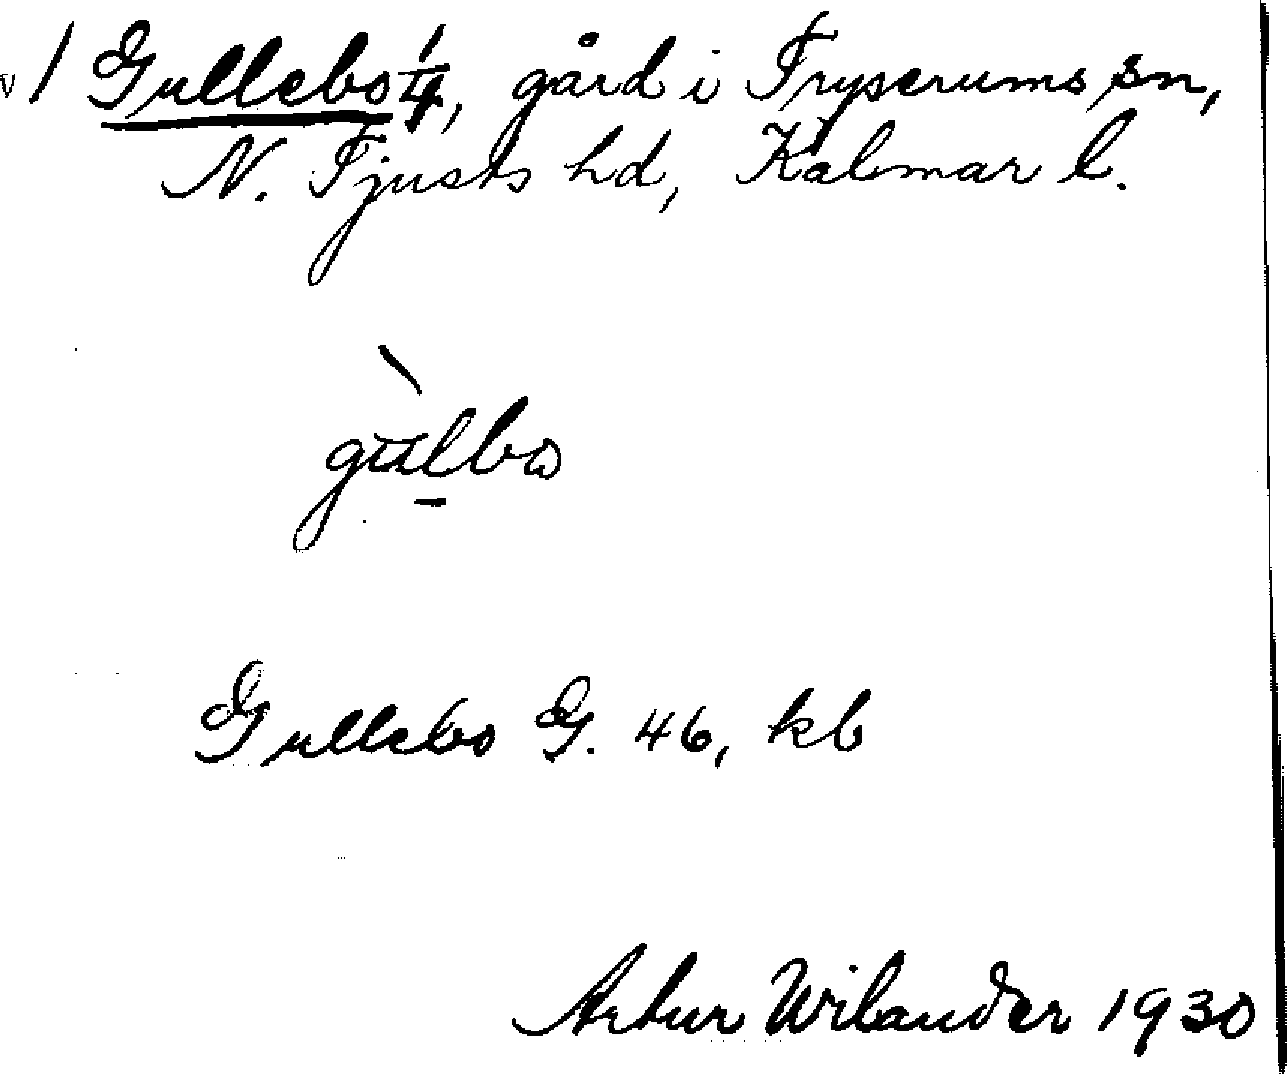 v / Gullebo 1/4, gård i Tryserums sn,
N. Tjusts hd, Kalmar l.
gùlbo
Gullebo G. 46, kb
Artur Wilander 1930